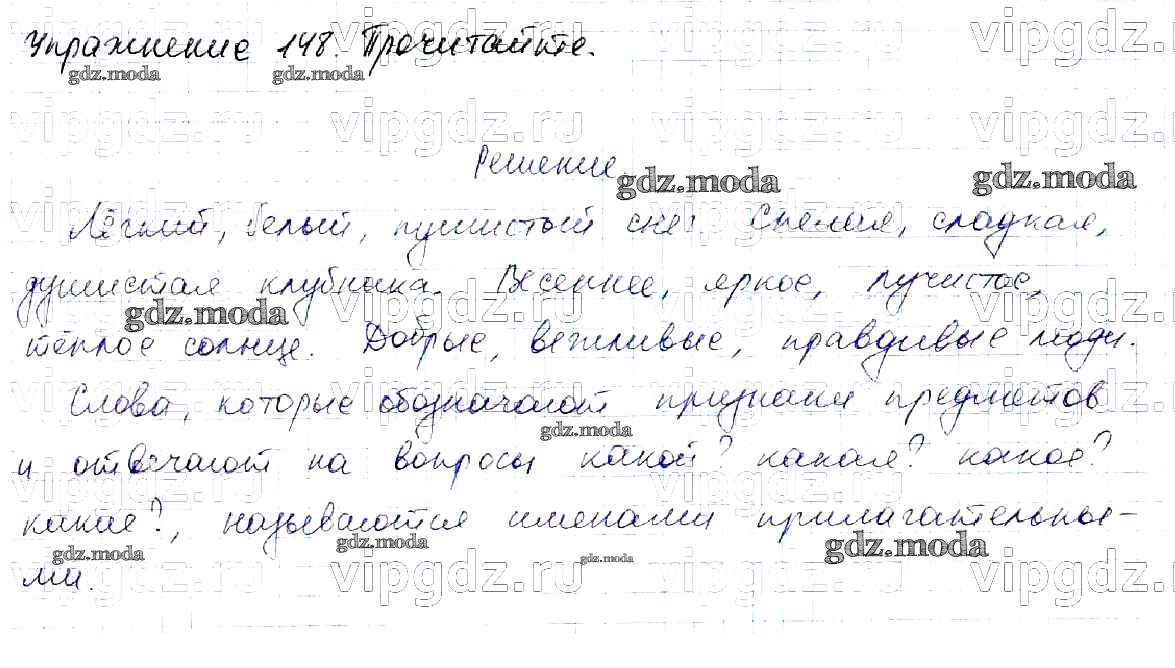 Упражнение 148. Прочитайте.
Решение.
Лёгкий, белый, пушистый снег. Спелая, сладкая,
душистая клубника. Весеннее, яркое, лучистое,
тёплое солнце. Добрые, вежливые, правдивые люди.
Слова, которые обозначают признаки предметов
и отвечают на вопросы какой? какая? какое?
какие?, называются именами прилагательны-
ми.